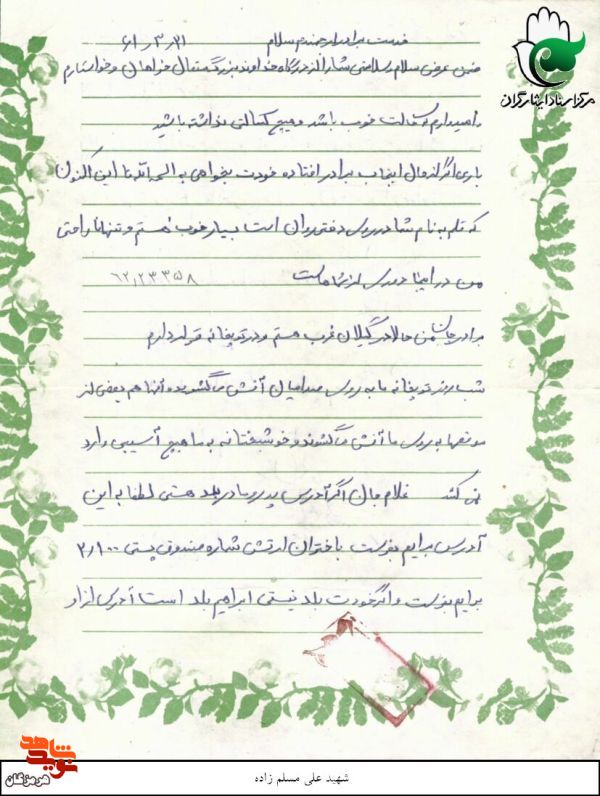 مرکز اسناد ایثارگران
خدمت برادر ارجمندم سلام ۶۱٫۳٫۲۱
ضمن عرض سلام و سلامتی شما از درگاه خداوند بزرگ متعال خواهان و خواستارم
و امیدوارم که حالت خوب باشد و هیچ کسالتی نداشته باشید
باری اگر از حال اینجانب برادر افتاده خودت بخواهی به الحمدالله تا این اکنون
که قلم به نام شما در روی دفتر روان است بسیار خوب هستم و تنها ناراحتی
من در اینجا دوری از شماست ۶۲٫۲۳۳۵۸
برادر جان من حالا در گیلان غرب هستم و در توپخانه قرار دارم
شب و روز توپخانه ما به روی صدامیان آتش می‌گشوده و آنها هم بعضی از
موقعها به روی ما آتش می‌گشوند و خوشبختانه به ما هیچ آسیبی وارد
نمی کند غلام جان اگر آدرس پدر و مادر بلد هستی لطفا به این
آدرس برایم بفرست باختران ارتش شماره صندوق پستی ۳٫۱۰۰
برایم بفرست و اگر خودت بلد نیستی ابراهیم بلد است آدرس از او
نوید شاهد
هرمزگان
شهید علی مسلم زاده